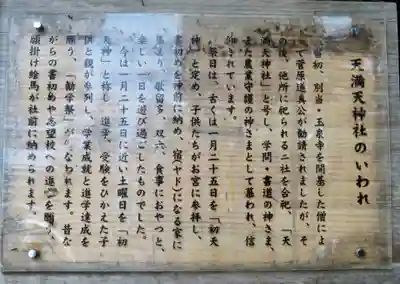 天満天神社のいわれ
当初、別当・玉泉寺を開基した僧によ
って菅原道真公が勧請されましたが、そ
の後、他所に祀られる二社を合祀、「天
満天神社」と号し、学問・書道の神さま、
また農業守護の神さまとして慕われ、信
仰されています。
祭日は、古くは一月二十五日を「初天
神」と定め、子供たちがお宮に参拝し、
書初めを神前に納め、宿(ヤド)になる家に
集まり、歌留多、双六、食事におやつと、
楽しい一日を遊び過ごしたものでした。
今は一月二十五日に近い土曜日を「初
天神」と称し、進学、受験をひかえた子
供と親が参列し、学業成就と進学達成を
願う、「勧学祭」が行なわれます。昔な
がらの書初めや志望校への進学を願う、
願掛け絵馬が社前に納められます。